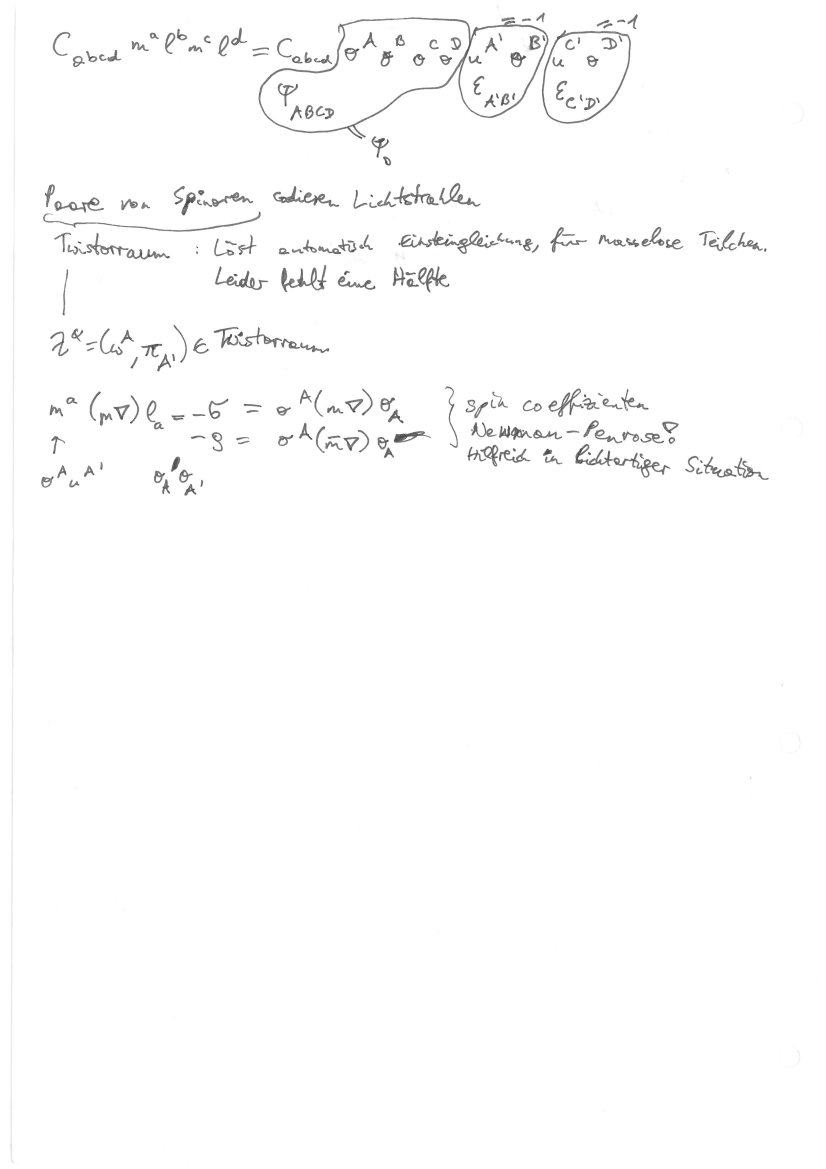 C_{abcd} m^a l^b m^c l^d = C_{abcd} o^A o^B o^C o^D ι^{A'} o^{B'} ι^{C'} o^{D'}
= -1 = -1
Ψ_{ABCD} ε_{A'B'} ε_{C'D'}
= Ψ_0
Paare von Spinoren codieren Lichtstrahlen
Twistorraum : Löst automatisch Einsteingleichung, für masselose Teilchen.
Leider fehlt eine Hälfte
Z^α = (ω^A, π_{A'}) ∈ Twistorraum
m^a (m∇) l_a = -σ = o^A (m∇) o_A } spin coeffizienten
↑ -ρ = o^A (m̄∇) o_A Newman-Penrose!
o^A ι^{A'} o_A o_{A'} Hilfreich in lichtartiger Situation